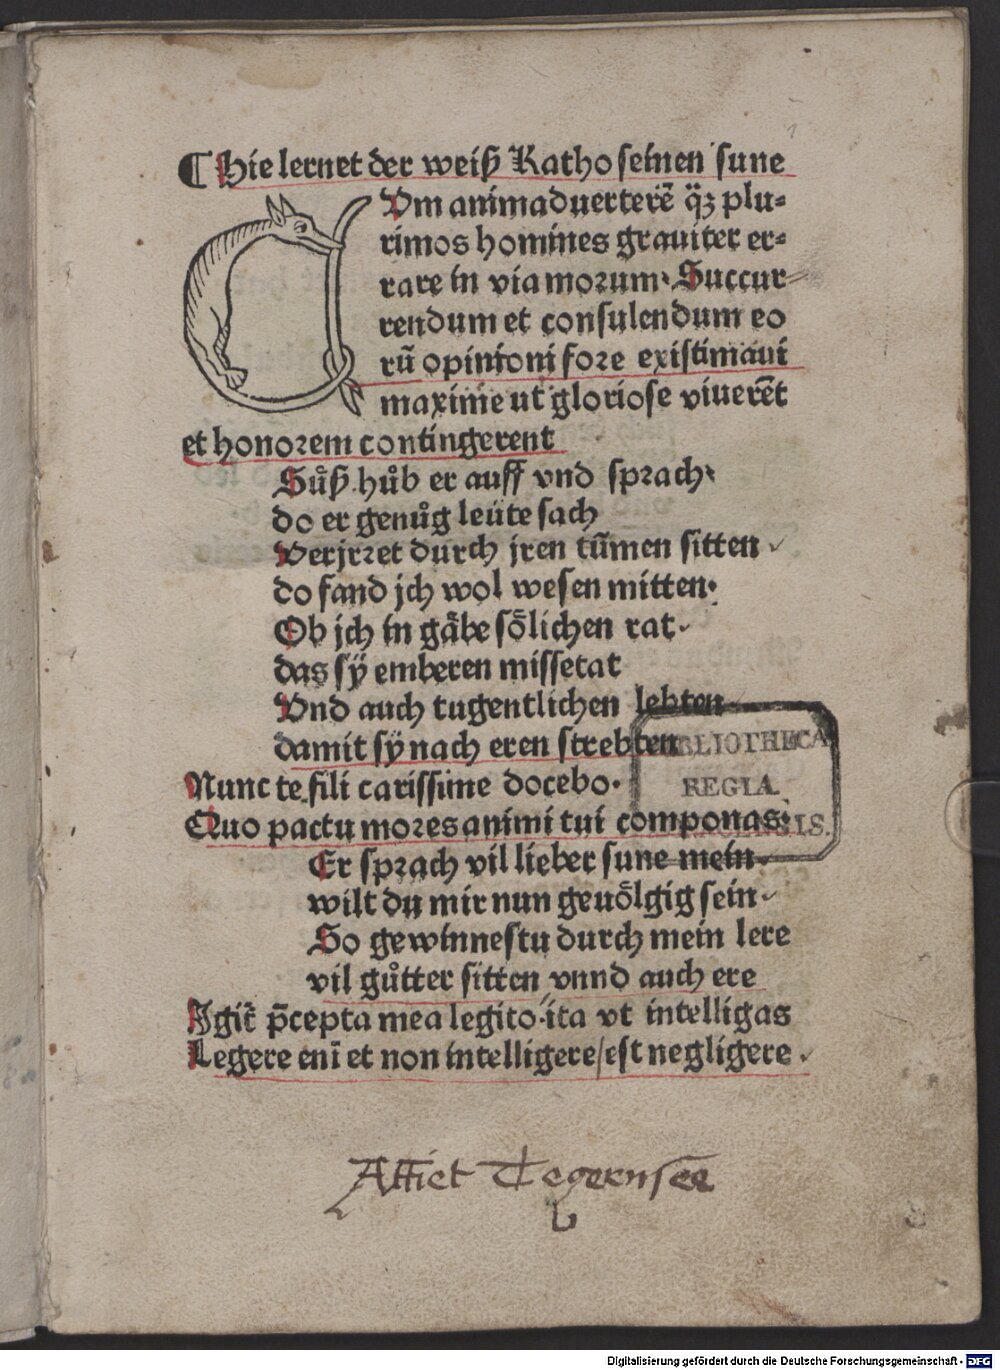 ¶ Hie lernet der weiß Katho seinen sune
CUm animaduerterē q̈ꝫ plu⸗
rimos homines grauiter er⸗
rare in via moꝛum. Succur⸗
rendum et consulendum eo
rū opinioni foꝛe existimaui
maxime ut glorioſe viuerēt
et honoꝛem contingerent
Sůß hůb er auff vnd sprach.
do er genůg leüte sach
Verjrꝛet durch jren tūmen sitten
do fand jch wol wesen mitten.
Ob jch in gåbe sȫlichen rat.
das sÿ emberen missetat
Vnd auch tugentlichen lebten
damit sÿ nach eren strebten
Nunc te fili carissime docebo.
Quo pactu moꝛes animi tui componas.
Er sprach vil lieber sune mein.
wilt du mir nun geuȫlgig sein.
So gewinnestu durch mein lere
vil gůtter sitten vnnd auch ere
Igit̄ p̄cepta mea legito ita vt intelligas
Legere eni̅ et non intelligere/est negligere.
BIBLIOTHECA
REGIA
MONACENSIS.
Attiet Tegernsee
Digitalisierung gefördert durch die Deutsche Forschungsgemeinschaft - DFG